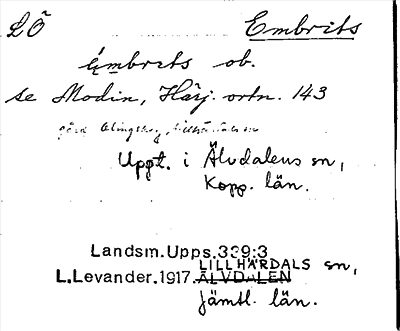 LÖ Embrits
Émbrits ob.
se Modin, Härj. ortn. 143
gård
Uppt. i Älvdalens sn,
Kopp. län.
Landsm.Upps.339:3
LILLHÄRDALS sn,
L.Levander.1917. ÄLVDALEN
Jämtl. län.